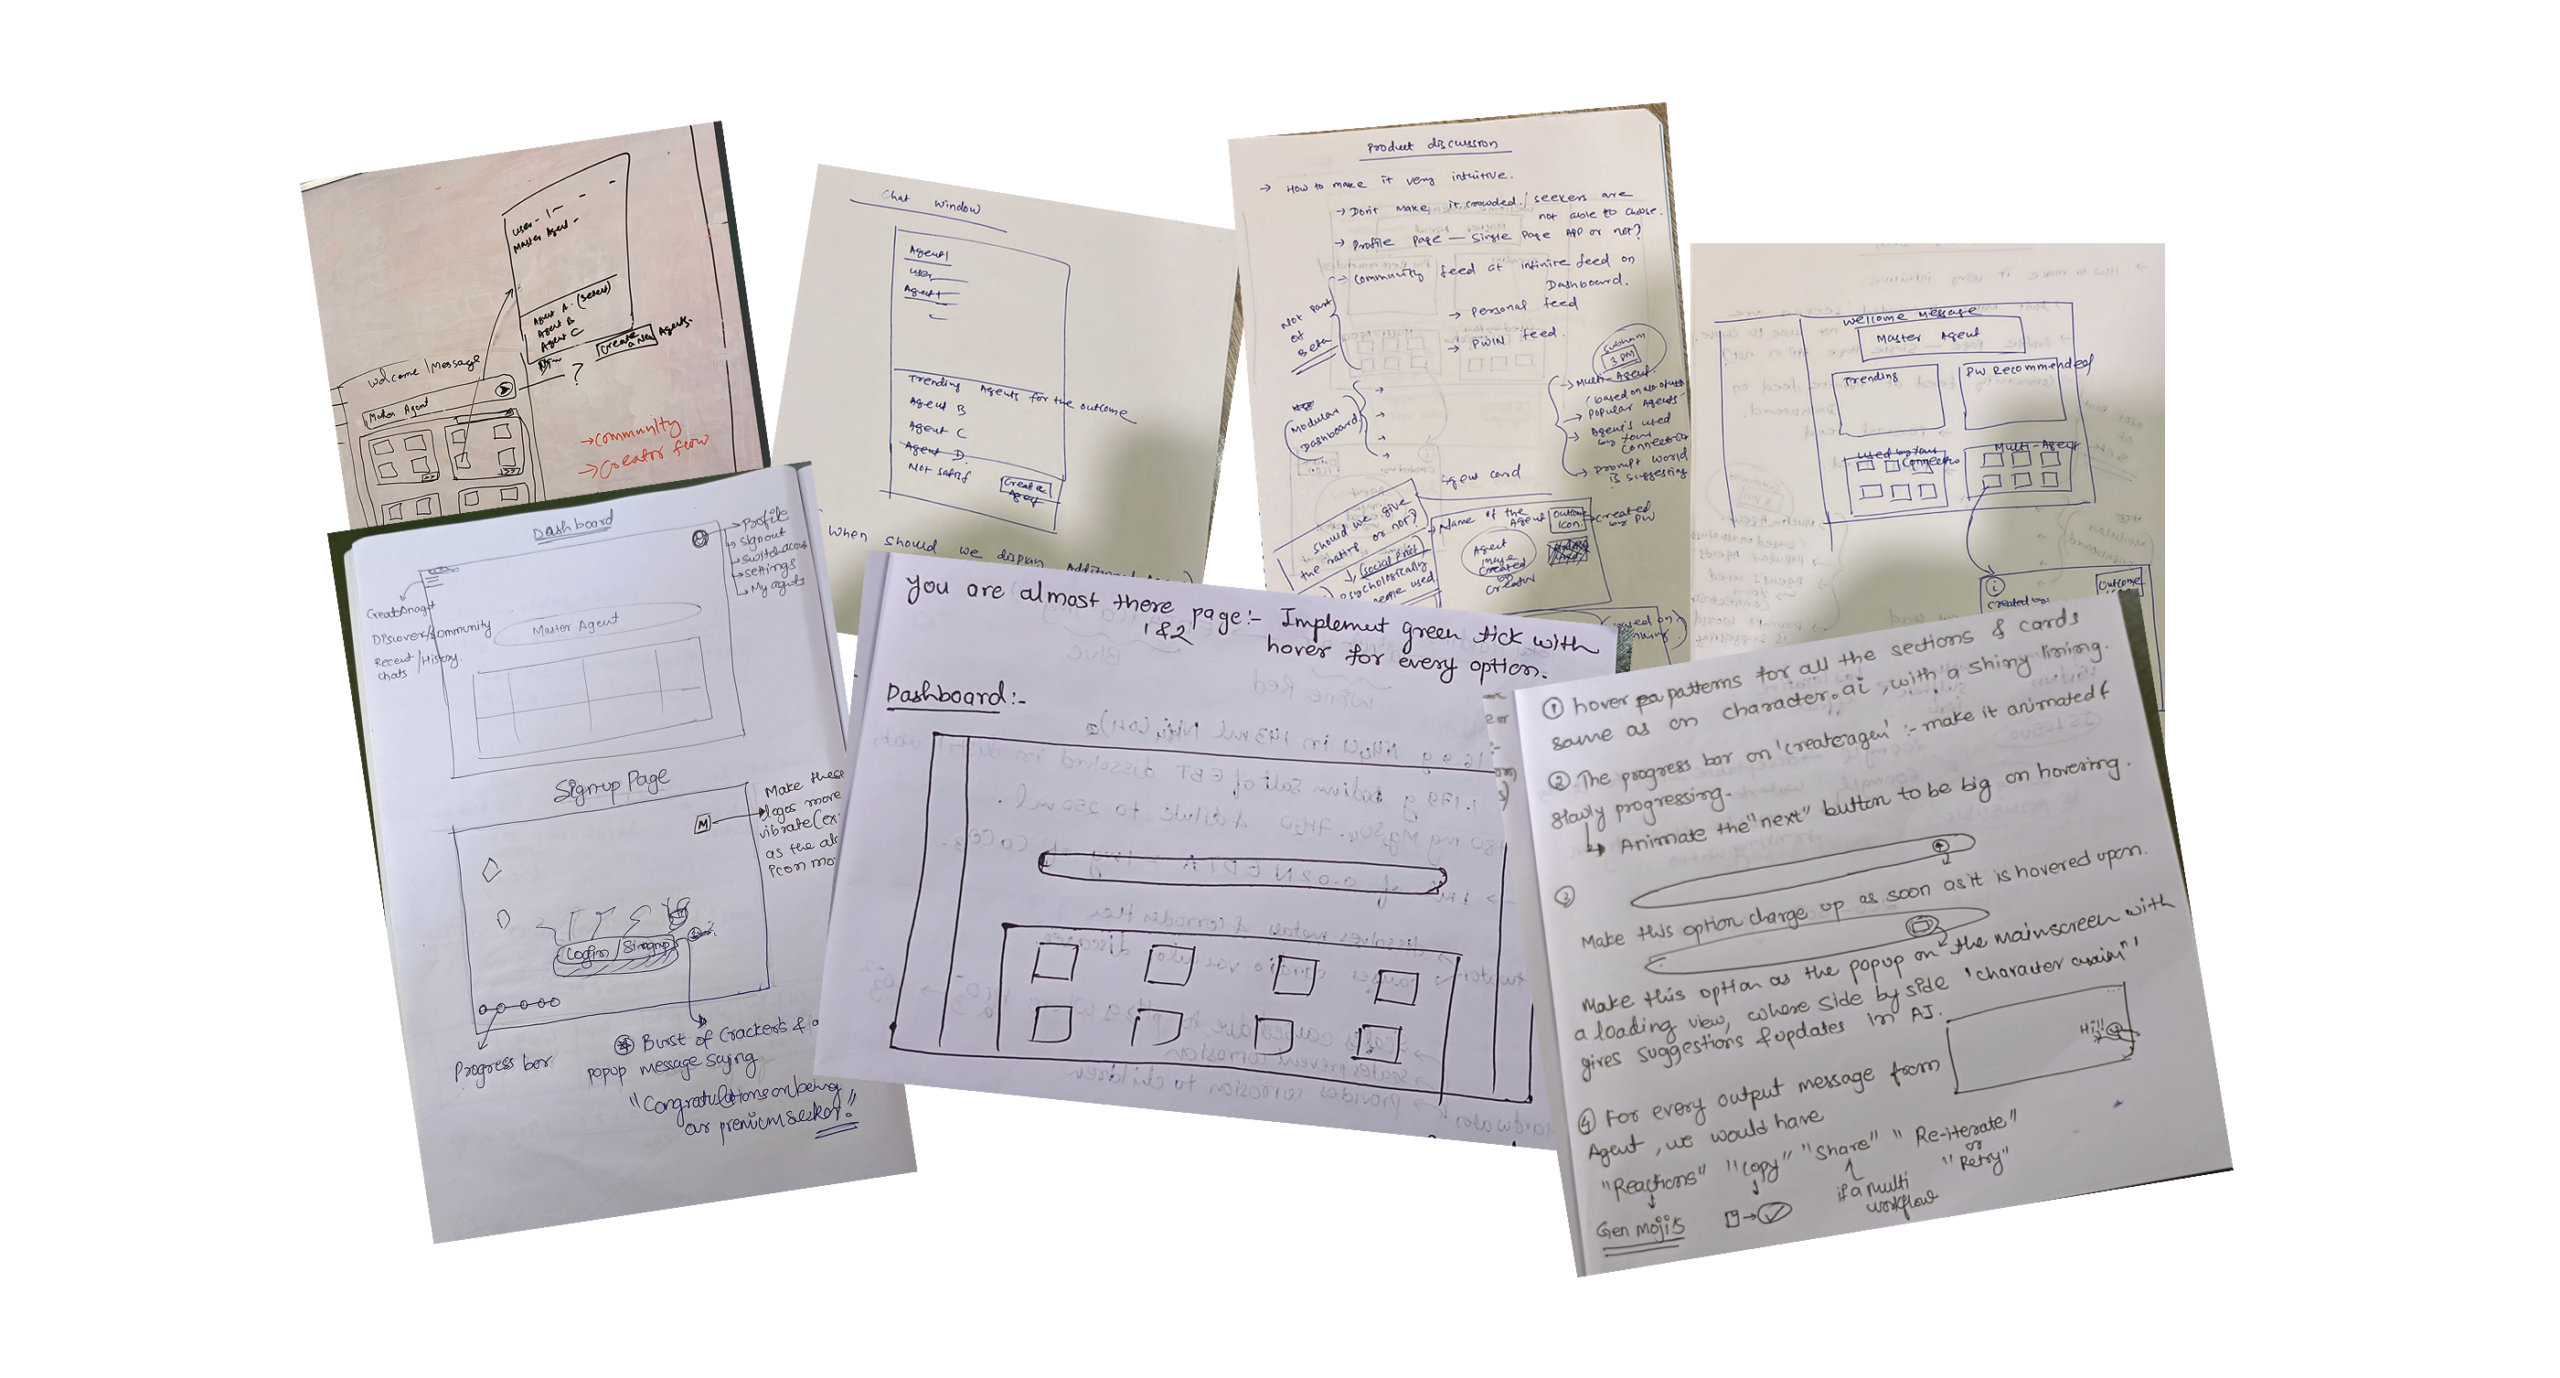 User - 1 -
Master Agent -
Agent A. (Select)
Agent B
Agent C
Create a New Agents.
?
Welcome Message
Master Agent
→ Community
→ Creator flow
Chat window
Agent 1
User
Agent 1
Trending Agents for the outcome
Agent B
Agent C
Agent D.
Not satisf
Create Agent
When should we display Additional
Product discussion
→ How to make it very intuitive.
→ Don't make it crowded / seekers are
not able to choose.
→ Profile Page — Single Page APP or not?
→ Community feed at infinite feed on
Dashboard.
→ Personal feed
→ PWIN feed.
Not part
of
Beta
Subham
3 pm
Modular
Dashboard
→ Multi-Agent.
→ Popular Agents
→ Agent's used
by your
Connection
→ Prompt World
is suggesting
Agent card
Should we give
the rating or not?
↓ (Social Prief
Psychologically
people used
Name of the
Agent
Outcome
Icon
→ created
by PW
Agent
image
Created
by
Creator
Welcome Message
Master Agent
Trending
PW Recommended
used by your
Connectio
Multi-Agent
i
Created by:
Outcome
Dashboard
→ Profile
→ Signout
→ Settings
→ My agents
Discover/Community
Recent/History.
chats
Master Agent
Signup Page
M
Make these
logos more
vibrate (ex:
Login / Signup
Progress bar
Burst of Crackers &
popup message saying
"Congratulations on being
our premium seeker."
You are almost there page:- Implement green tick with
1 & 2
hover for every option.
Dashboard:-
① hover pa patterns for all the sections & cards
same as on character.ai, with a shiny lining.
② The progress bar on 'create agen' :- make it animated &
slowly progressing.
↳ Animate the "next" button to be big on hovering.
③
Make this option charge up as soon as it is hovered upon.
Make this option as the popup on the mainscreen with
a loading view, where side by side 'character
gives suggestions & updates in AI.
Hi!!
④ For every output message from
Agent, we would have
"Reactions" "Copy" "Share" "Re-iterate"
or
"Retry"
if a multi
workflow
Gen mojis